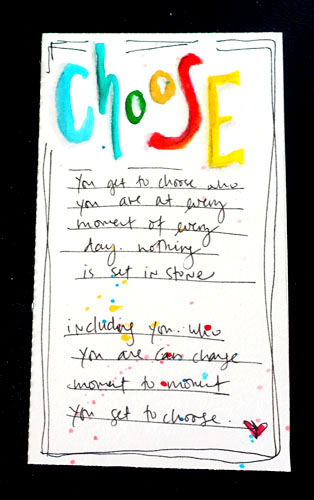 CHOOSE
You get to choose who
you are at every
moment of every
day. nothing
is set in stone
including you. who
you are can change
moment to moment
You get to choose.